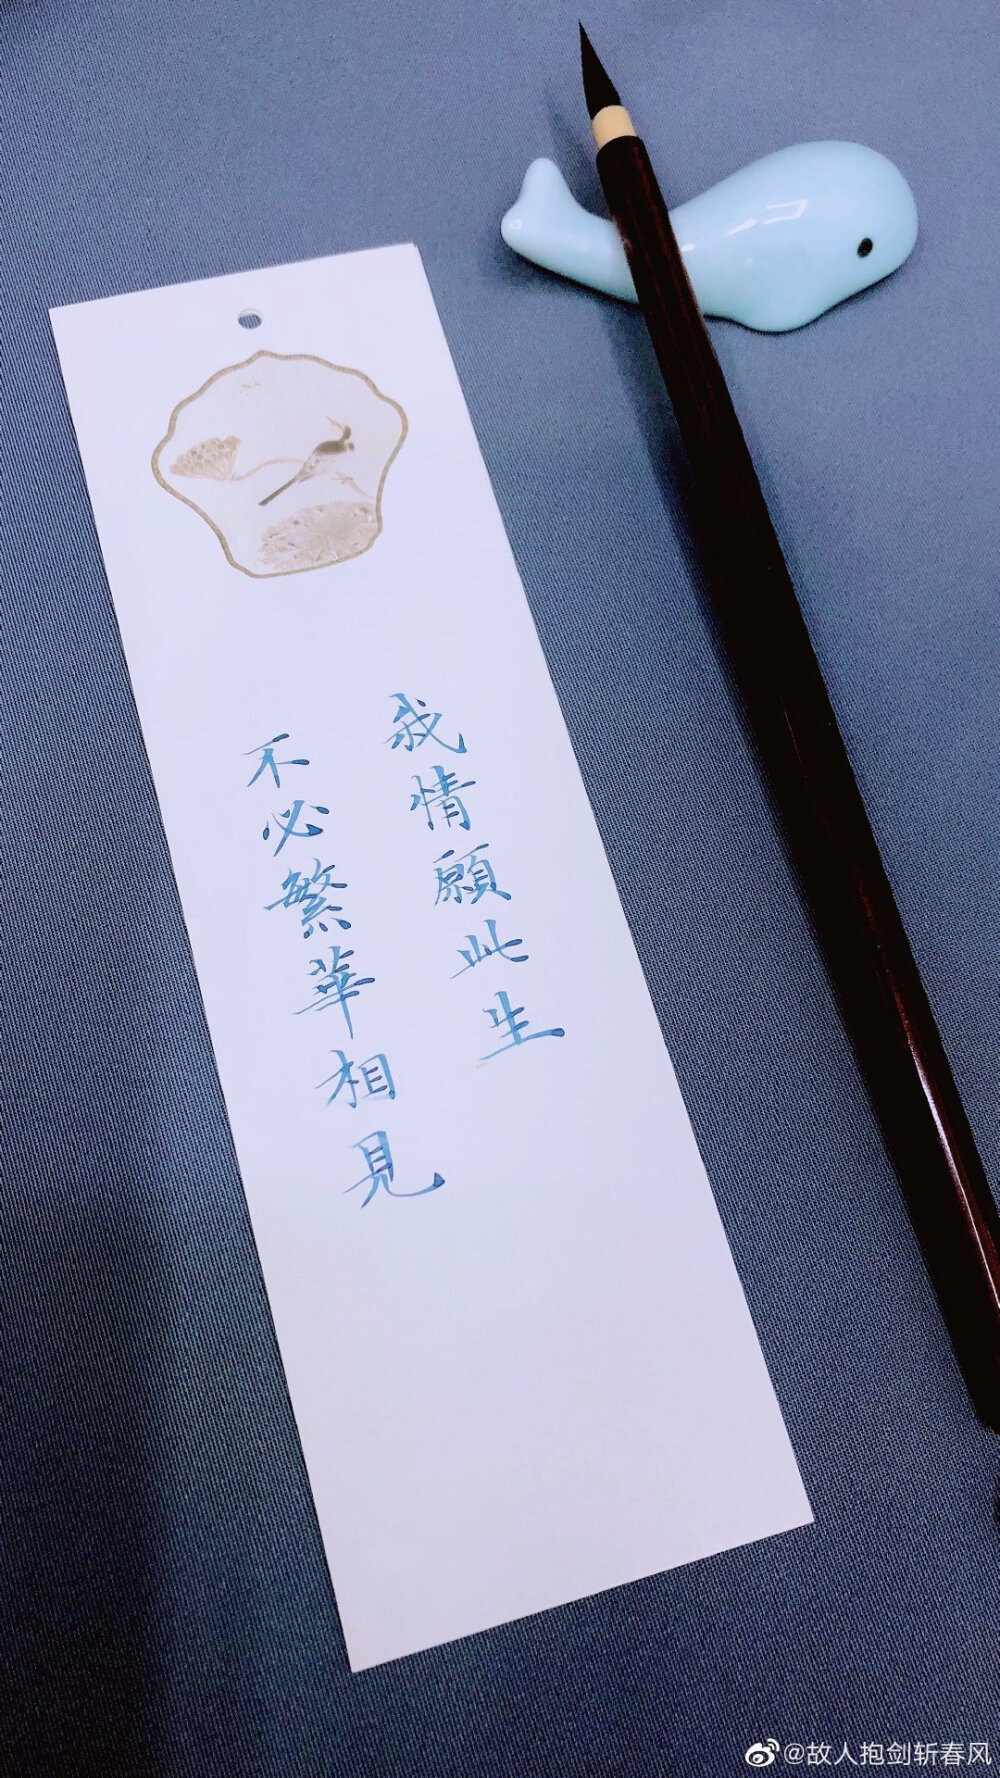 我情願此生
不必繁華相見
@故人抱剑斩春风